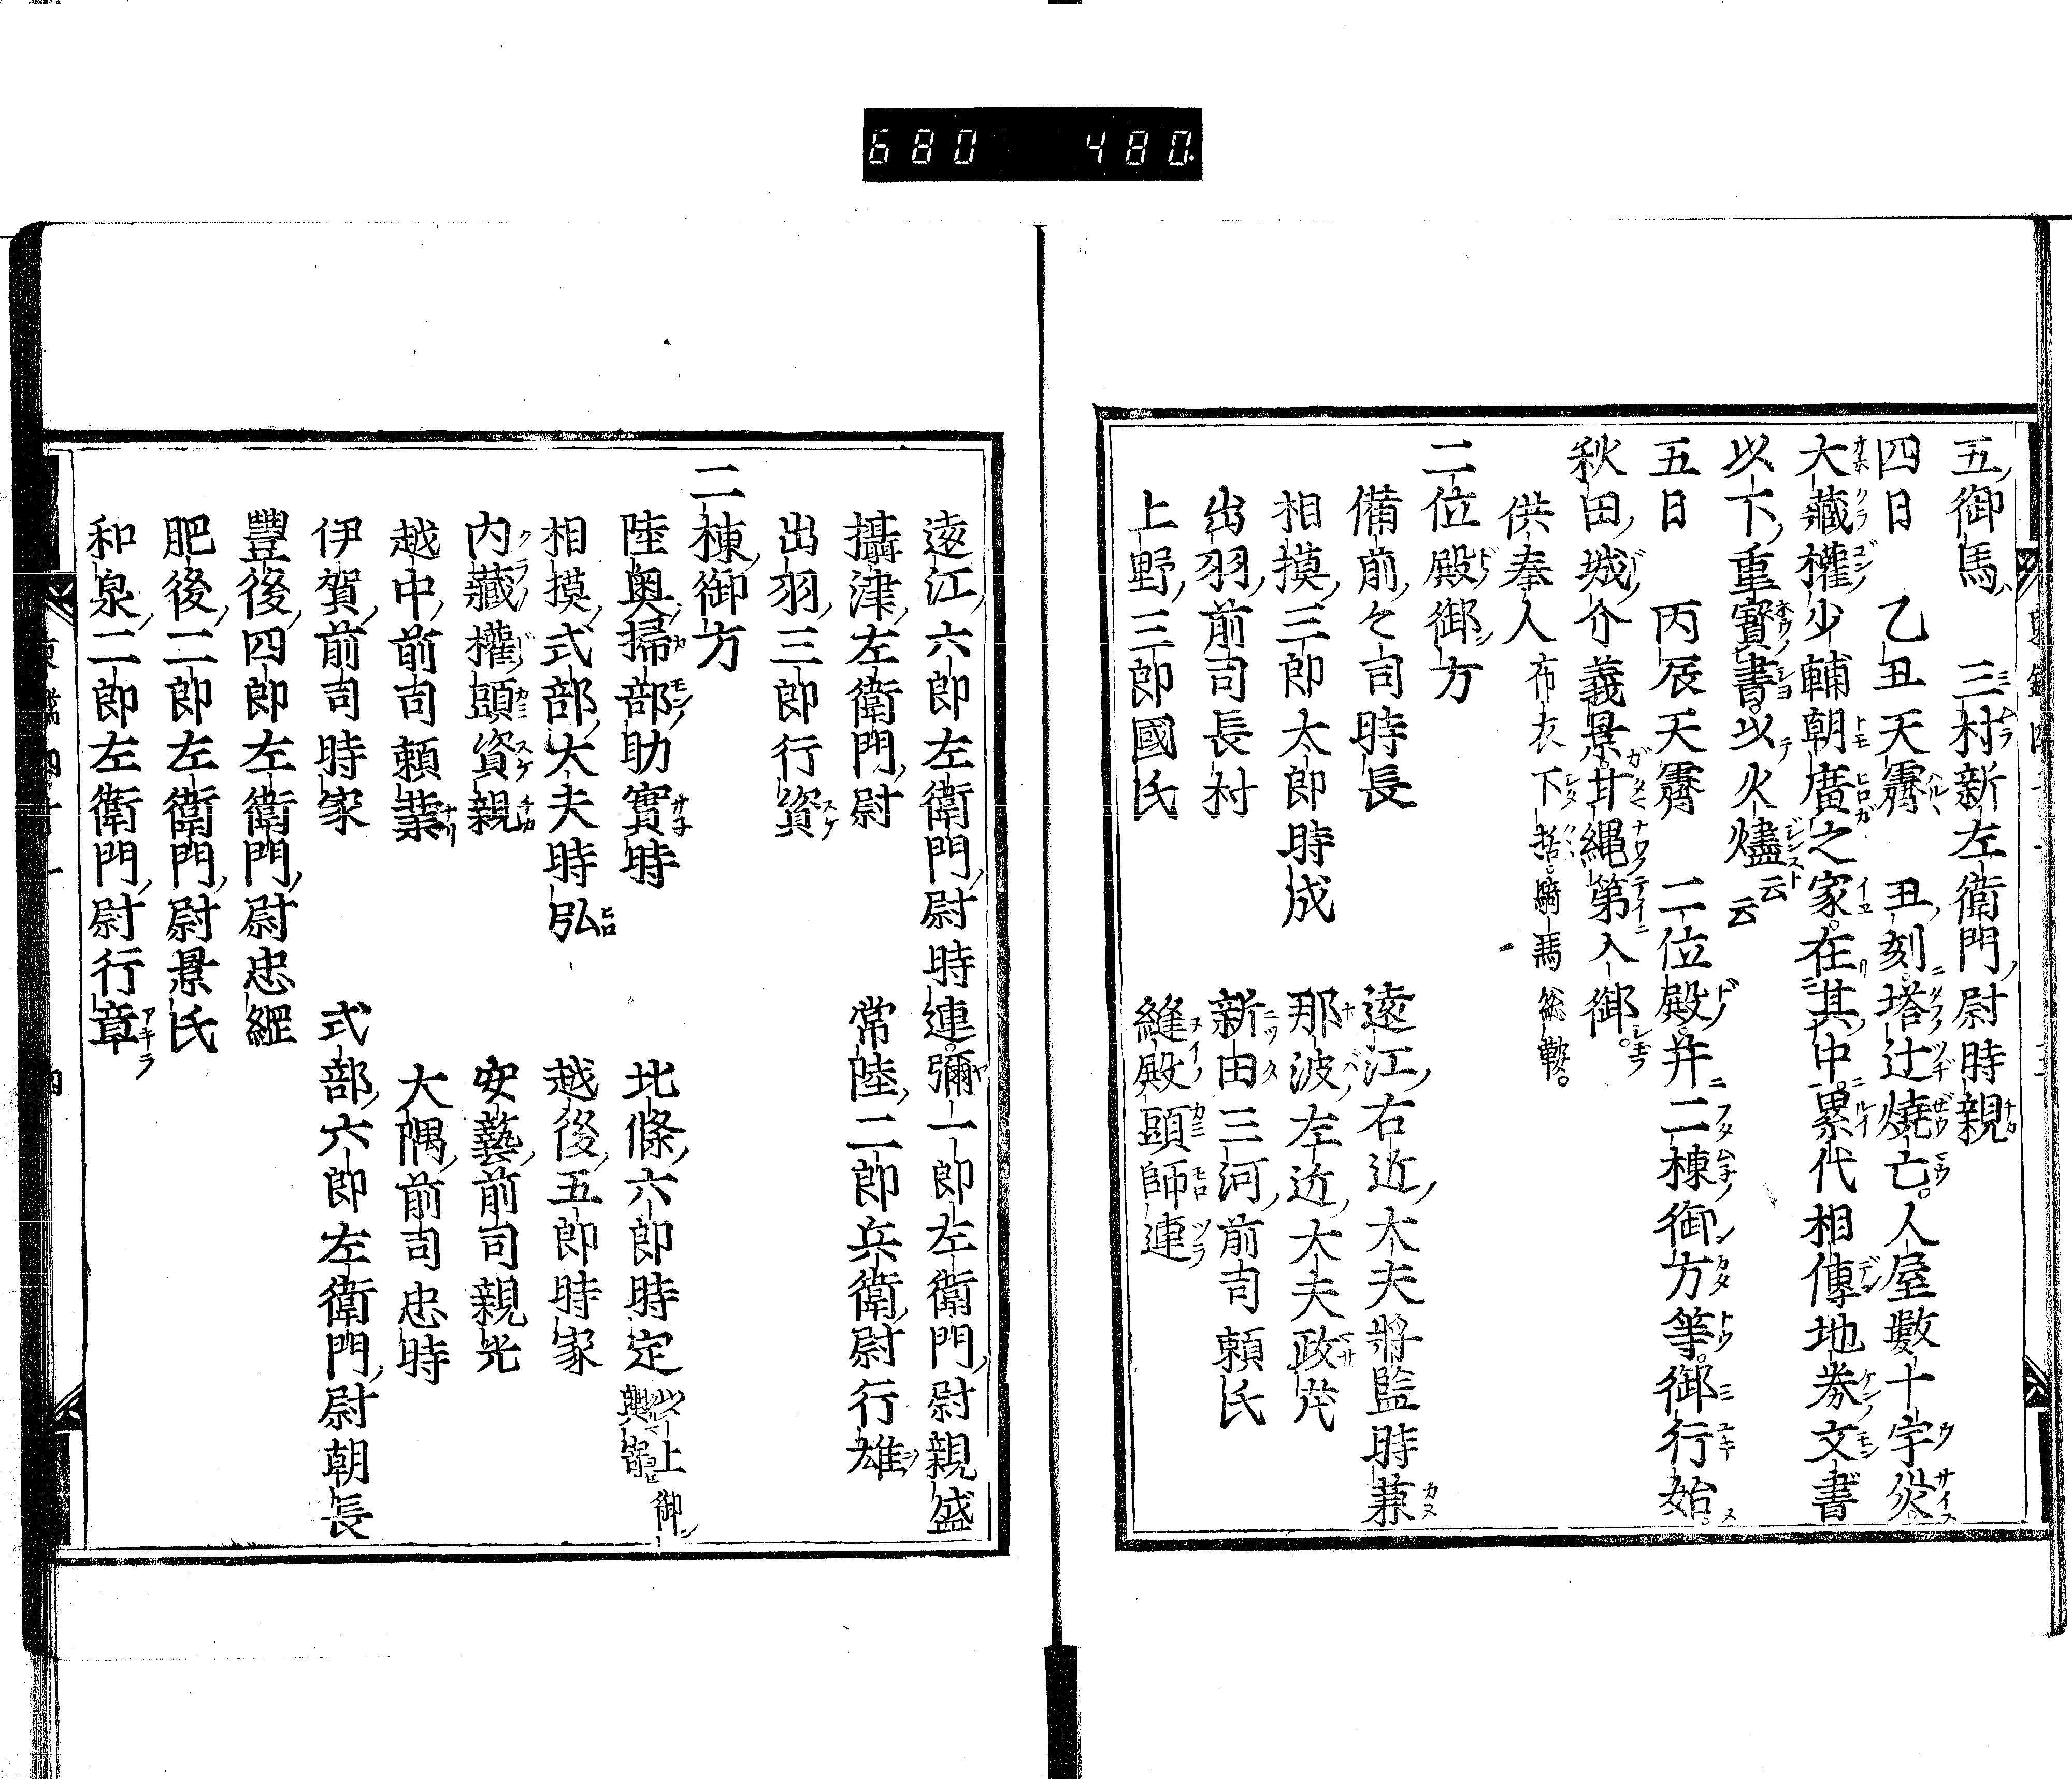 680 480.
五御馬 三村新左衛門尉時親
四日 乙丑天霽 丑刻塔辻燒亡人屋數十宇災
大藏權少輔朝廣之家在其中累代相傳地券文書
以下重寳書以火燼云云
五日 丙辰天霽 二位殿并二棟御方等御行始
秋田城介義景甘縄第入御
供奉人 布衣下括騎馬総鞦
二位殿御方
備前々司時長 遠江右近大夫將監時兼
相摸三郎太郎時成 那波左近大夫政茂
出羽前司長村 新田三河前司頼氏
上野三郎國氏 縫殿頭師連
遠江六郎左衛門尉時連 彌一郎左衛門尉親盛
攝津左衛門尉 常陸二郎兵衛尉行雄
出羽三郎行資
二棟御方
陸奥掃部助實時 北條六郎時定
相摸式部大夫時弘 越後五郎時家
内藏權頭資親 安藝前司親光
越中前司頼業 大隅前司忠時
伊賀前司時家 式部六郎左衛門尉朝長
豐後四郎左衛門尉忠經
肥後二郎左衛門尉景氏
和泉二郎左衛門尉行章